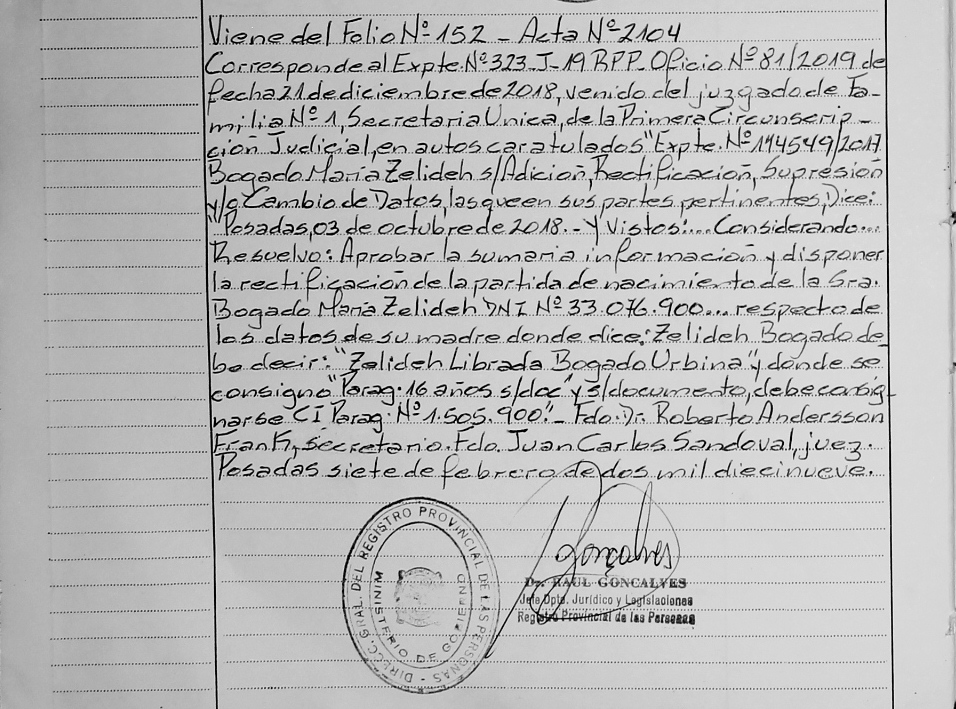 Viene del Folio Nº 152 - Acta Nº 2104
Corresponde al Expte. Nº 323-J-19 RPP. Oficio Nº 81/2019 de
fecha 21 de diciembre de 2018, venido del juzgado de Fa-
milia Nº 1, Secretaria Unica, de la Primera Circunscrip-
ción Judicial, en autos caratulados "Expte. Nº 194549/2017
Bogado Maria Zelideh s/Adición, Rectificación, Supresión
y/o Cambio de Datos, las que en sus partes pertinentes, Dice:
"Posadas, 03 de octubre de 2018.- Y Vistos:... Considerando...
Resuelvo: Aprobar la sumaria información y disponer
la rectificación de la partida de nacimiento de la Sra.
Bogado Maria Zelideh DNI Nº 33.076.900... respecto de
los datos de su madre donde dice: Zelideh Bogado de-
be decir: "Zelideh Librada Bogado Urbina" y donde se
consignó "Parag. 16 años s/doc" y s/documento, debe consig-
narse CI Parag. Nº 1.505.900".- Fdo. Dr. Roberto Andersson
Frank, secretario. Fdo. Juan Carlos Sandoval, juez.
Posadas siete de febrero de dos mil diecinueve.
DIRECC. GRAL. DEL REGISTRO PROVINCIAL DE LAS PERSONAS
MINISTERIO DE GOBIERNO
Gonçalves
Dr. RAUL GONCALVES
Jefe Dpto. Jurídico y Legislaciones
Registro Provincial de las Personas